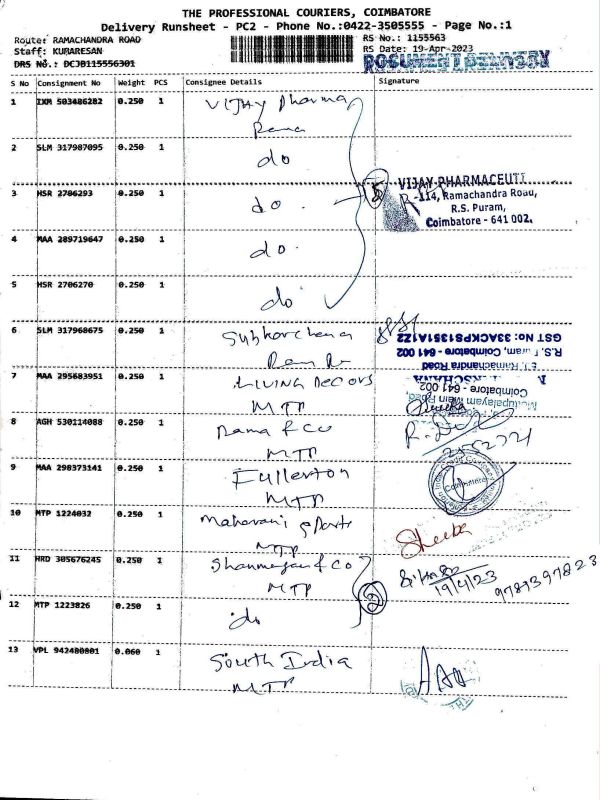 THE PROFESSIONAL COURIERS, COIMBATORE
Delivery Runsheet - PC2 - Phone No.:0422-3505555 - Page No.:1
Route: RAMACHANDRA ROAD
RS No.: 1155563
Staff: KUMARESAN
RS Date: 19-Apr-2023
DRS No.: DCJB115556301
S No Consignment No Weight PCS Consignee Details Signature
1 IXM 503486282 0.250 1 Vijay Pharma
Rama
2 SLM 317987095 0.250 1 do
3 HSR 2706293 0.250 1 do
VIJAY PHARMACEUTI
-114, Ramachandra Road,
R.S. Puram,
Coimbatore - 641 002.
4 MAA 289719647 0.250 1 do
5 HSR 2706270 0.250 1 do
6 SLM 317968675 0.250 1
GST NO: 33ACKPS1351A1Z2
Coimbatore - 641 002
Ramachandra Road
7 MAA 295683951 0.250 1 LIVING DECORS
MTP
Coimbatore - 641 002
8 AGH 530114088 0.250 1 Rama & Co
MTP
9 MAA 298373141 0.250 1 Fullerton
MTP
Coimbatore
10 MTP 1224032 0.250 1 Maharani
MTP
11 HRD 305676245 0.250 1 Shanmugan & CO
MTP
19/4/23
9781397823
12 MTP 1223826 0.250 1 do
13 VPL 942480801 0.060 1 South India
MTP